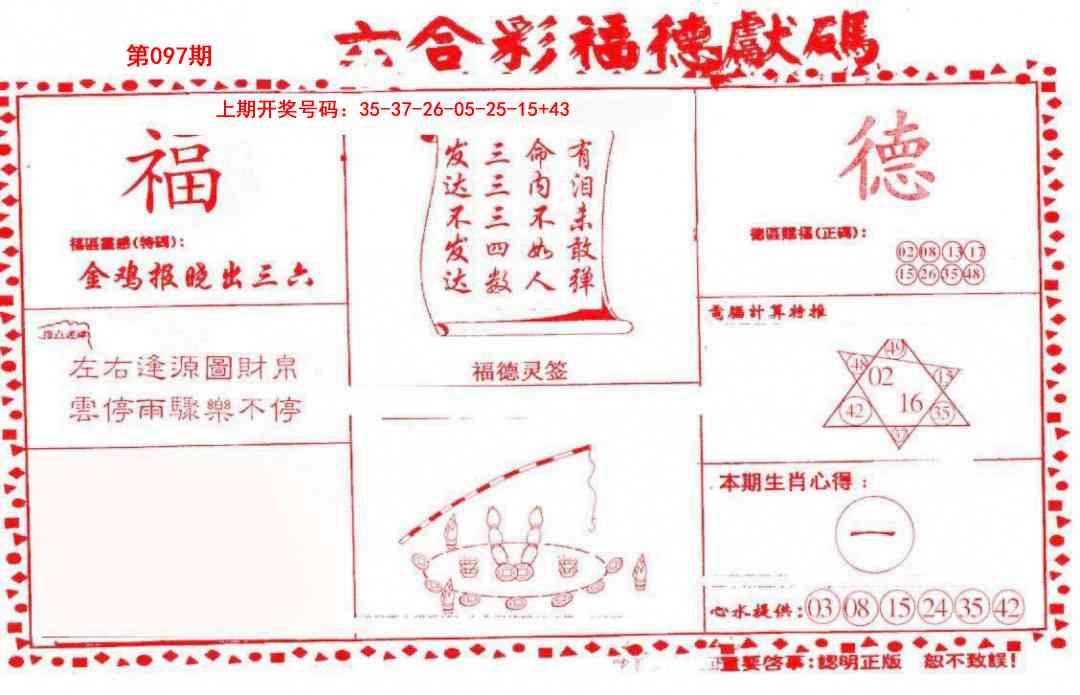 第097期
六合彩福德獻碼
上期开奖号码：35-37-26-05-25-15+43
福
福區靈感(特碼):
金鸡报晓出三六
左右逢源圖財帛
雲停雨驟樂不停
有泪未敢弹
命内不如人
三三三四数
发达不发达
福德灵签
德
德區賜福(正碼):
02 08 13 17
15 26 35 48
電腦計算特推
49
48 02 15
42 16 35
本期生肖心得：
一
心水提供: 03 08 15 24 35 42
重要啓事:認明正版 恕不致誤!